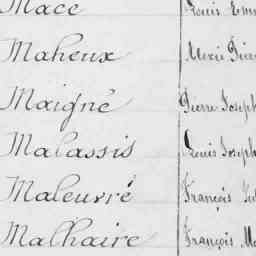 Macé Louis
Maheux Alexis
Maigné Pierre Joseph
Malassis Louis Joseph
Maleuvré François
Malhaire François